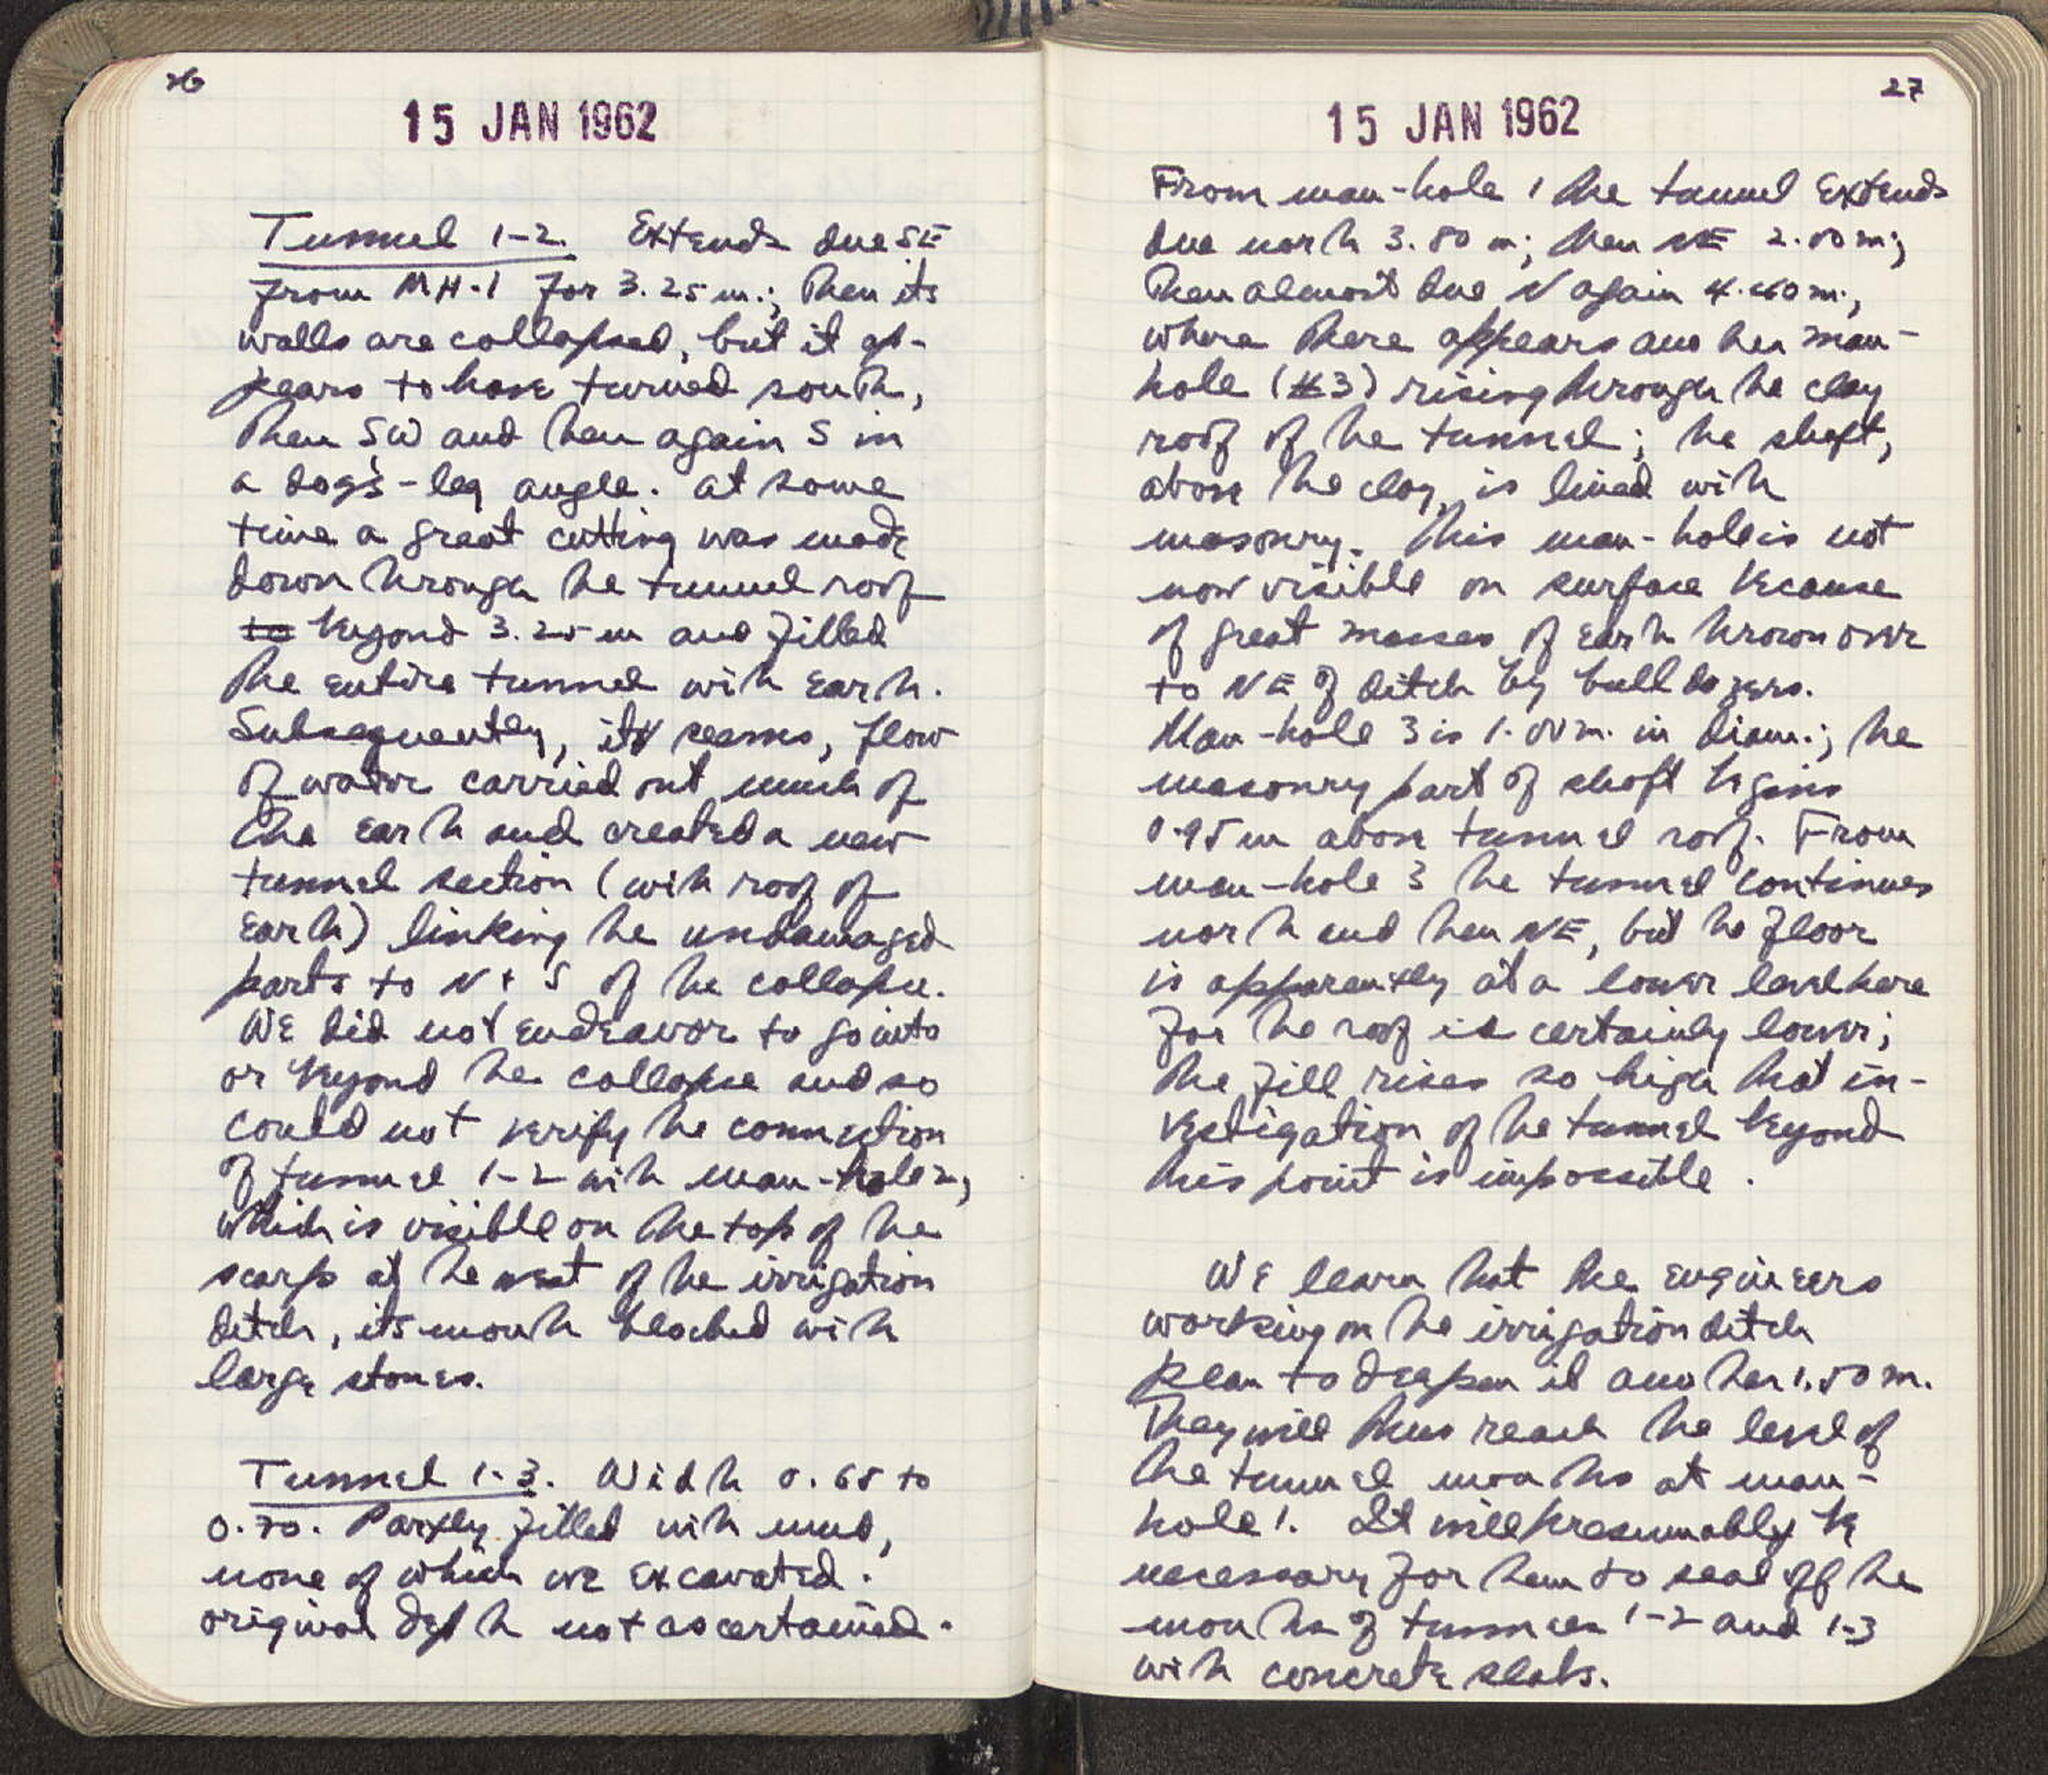 26
15 JAN 1962
Tunnel 1-2. Extends due SE
from MH-1 for 3.25 m.; then its
walls are collapsed, but it ap-
pears to have turned south,
then SW and then again S in
a dog's-leg angle. At some
time a great cutting was made
down through the tunnel roof
to beyond 3.25 m and filled
the entire tunnel with earth.
Subsequently, it seems, flow
of water carried out much of
the earth and created a new
tunnel section (with roof of
earth) linking the undamaged
parts to N + S of the collapse.
We did not endeavor to go into
or beyond the collapse and so
could not verify the connection
of tunnel 1-2 with man-hole 2,
which is visible on the top of the
scarp at the west of the irrigation
ditch, its mouth blocked with
large stones.
Tunnel 1-3. Width 0.65 to
0.70. Partly filled with mud,
none of which we excavated.
Original depth not ascertained.
27
15 JAN 1962
From man-hole 1 the tunnel extends
due north 3.80 m; then NE 2.00 m;
then almost due N again 4.60 m.,
where there appears another man-
hole (#3) rising through the clay
roof of the tunnel; the shaft,
above the clay, is lined with
masonry. This man-hole is not
now visible on surface because
of great masses of earth thrown over
to NE of ditch by bull dozers.
Man-hole 3 is 1.00 m. in diam.; the
masonry part of shaft begins
0.95 m above tunnel roof. From
man-hole 3 the tunnel continues
north and then NE, but the floor
is apparently at a lower level here
for the roof is certainly lower;
the fill rises so high that in-
vestigation of the tunnel beyond
this point is impossible.
We learn that the engineers
working on the irrigation ditch
plan to deepen it another 1.50 m.
They will thus reach the level of
the tunnel mouths at man-
hole 1. It will presumably be
necessary for them to seal off the
mouths of tunnels 1-2 and 1-3
with concrete slabs.